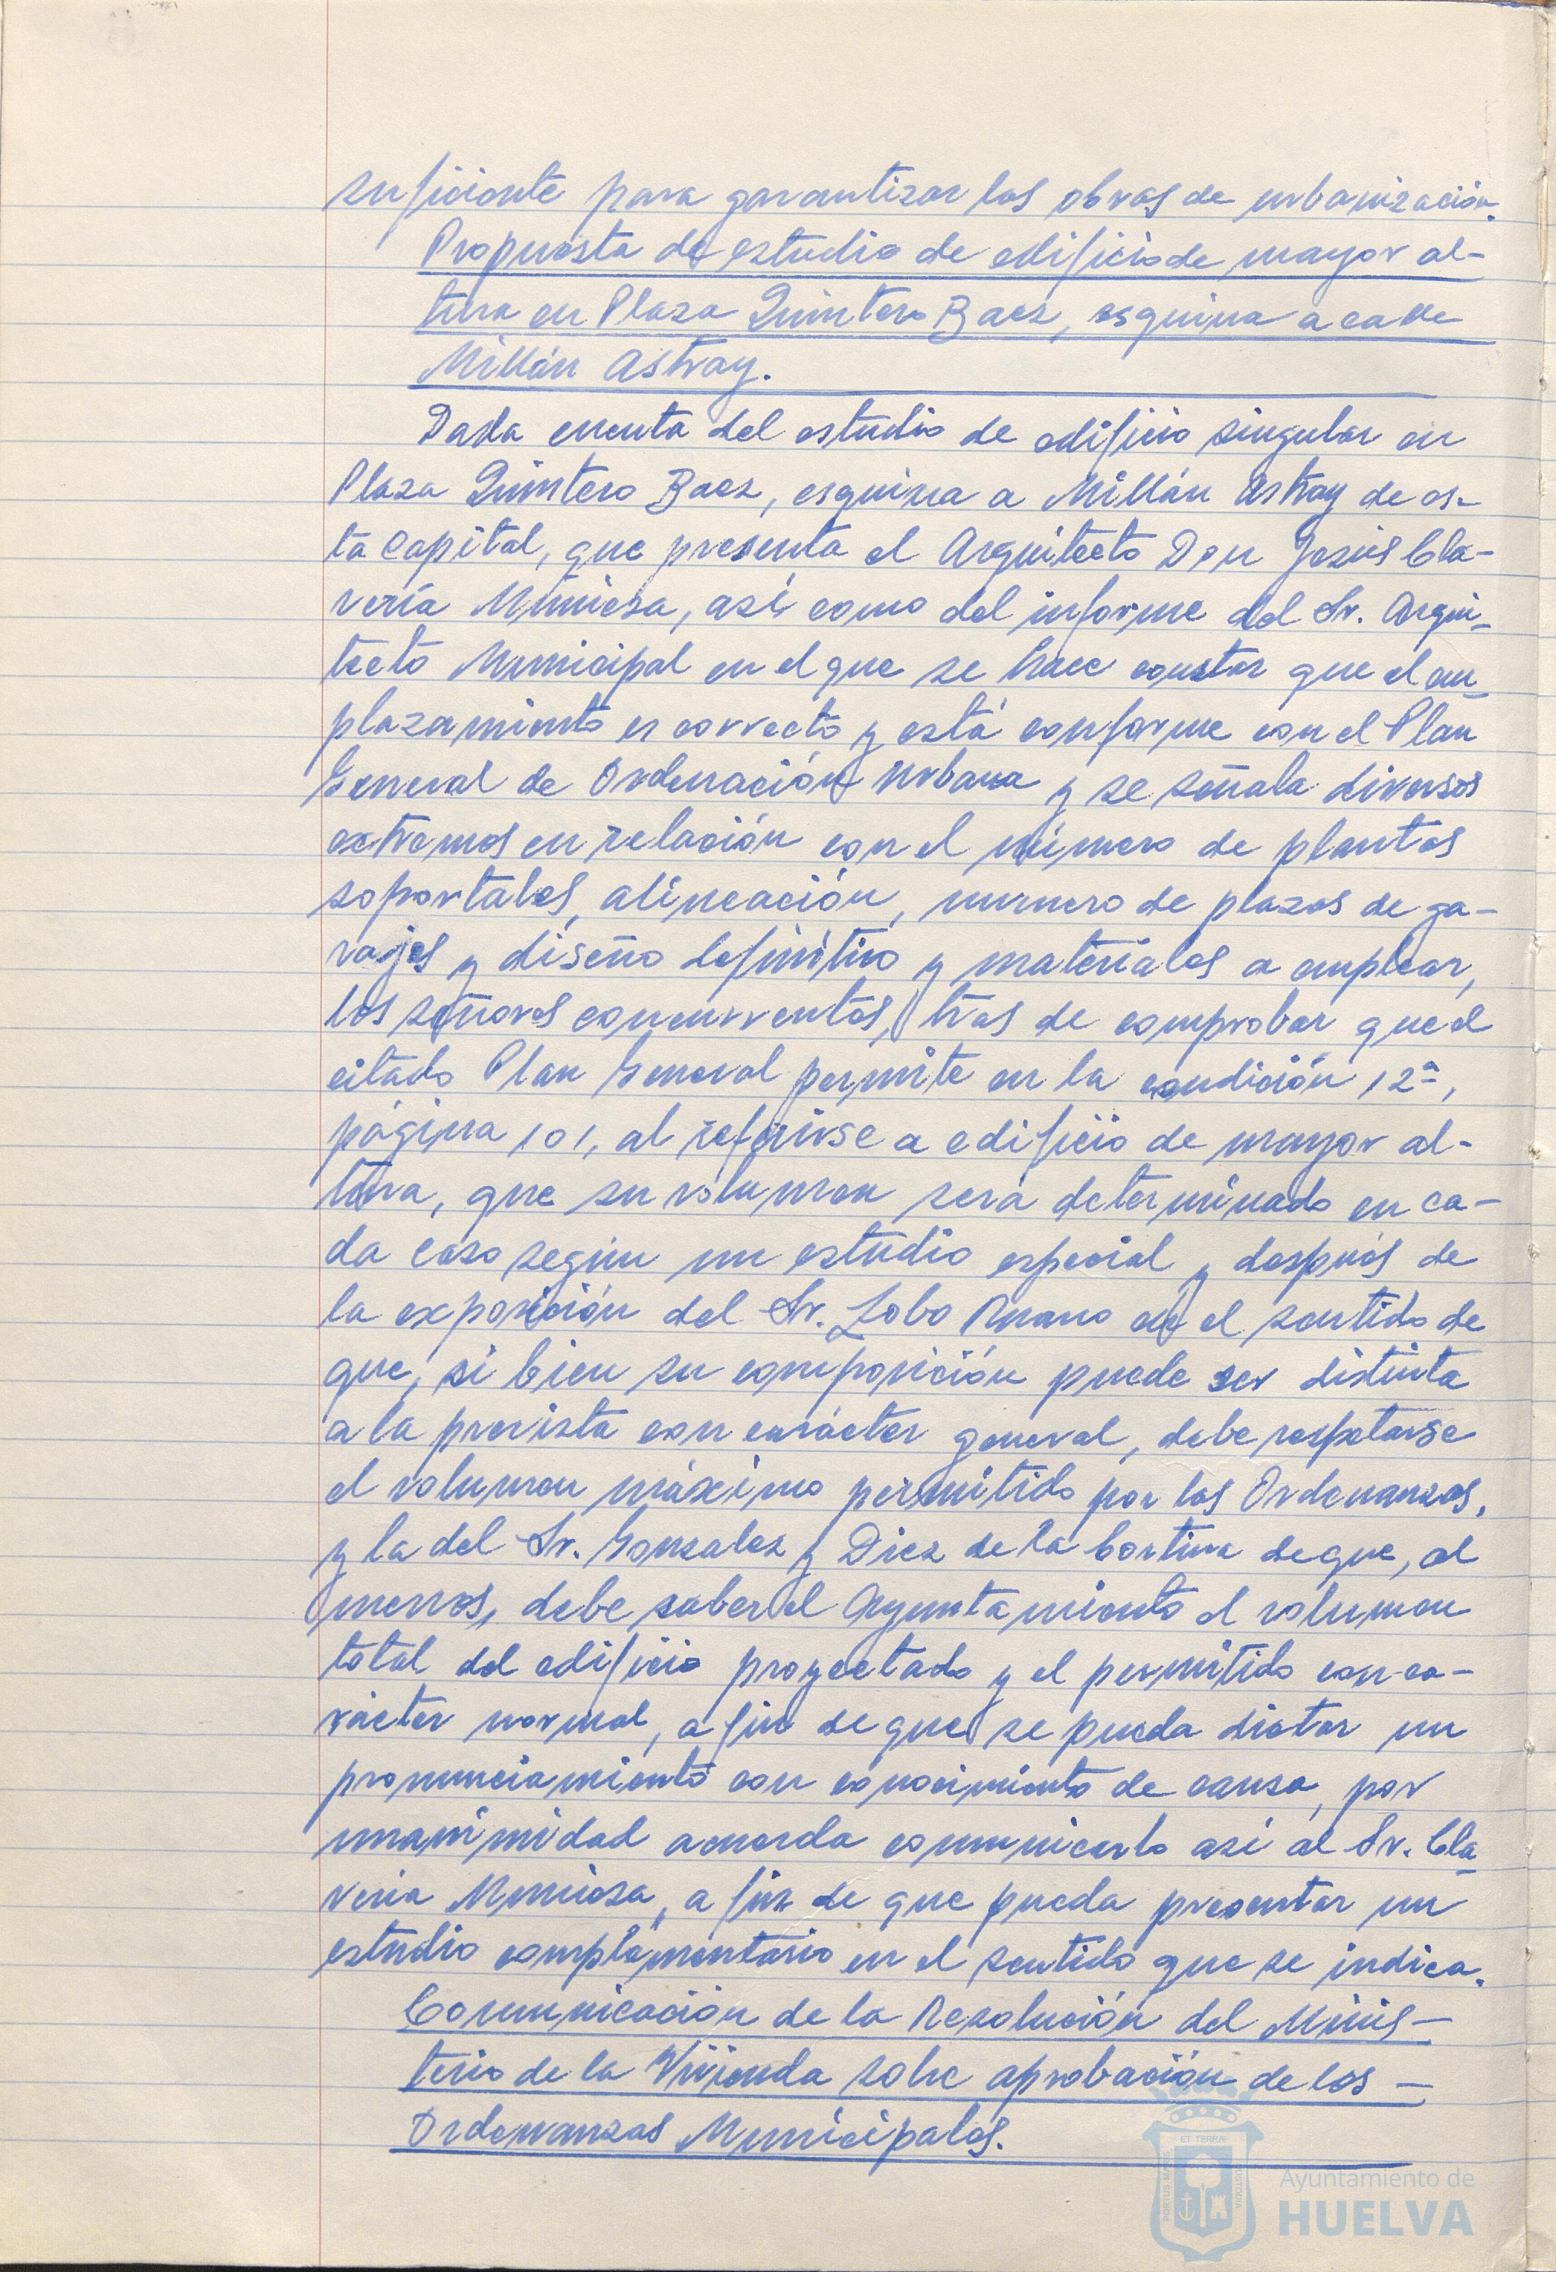 suficiente para garantizar las obras de urbanización.
Propuesta de estudio de edificio de mayor al-
tura en Plaza Quintero Baez, esquina a calle
Millán Astray.
Dada cuenta del estudio de edificio singular en
Plaza Quintero Baez, esquina a Millán Astray de es-
ta Capital, que presenta el Arquitecto Don Jesús Cla-
vería Muniesa, así como del informe del Sr. Arqui-
tecto Municipal en el que se hace constar que el em-
plazamiento es correcto y está conforme con el Plan
General de Ordenación Urbana y se señala diversos
extremos en relación con el número de plantas
soportales, alineación, numero de plazas de ga-
rajes y diseño definitivo y materiales a emplear,
los señores concurrentes, tras de comprobar que el
citado Plan General permite en la condición 12ª,
página 101, al referirse a edificio de mayor al-
tura, que su volumen será determinado en ca-
da caso según un estudio especial y después de
la exposición del Sr. Lobo Ruano en el sentido de
que, si bien su composición puede ser distinta
a la prevista con carácter general, debe respetarse
el volumen máximo permitido por las Ordenanzas,
y la del Sr. Gonzalez y Diez de la Cortina de que, al
menos, debe saber el Ayuntamiento el volumen
total del edificio proyectado y el permitido con ca-
rácter normal, a fin de que se pueda dictar un
pronunciamiento con conocimiento de causa, por
unanimidad acuerda comunicarlo así al Sr. Cla-
veria Muniesa, a fin de que pueda presentar un
estudio complementario en el sentido que se indica.
Comunicación de la Resolución del Minis-
terio de la Vivienda sobre aprobación de las -
Ordenanzas Municipales.
ET TERRÆ
PORTUS MARIS
CUSTODIA
Ayuntamiento de
HUELVA